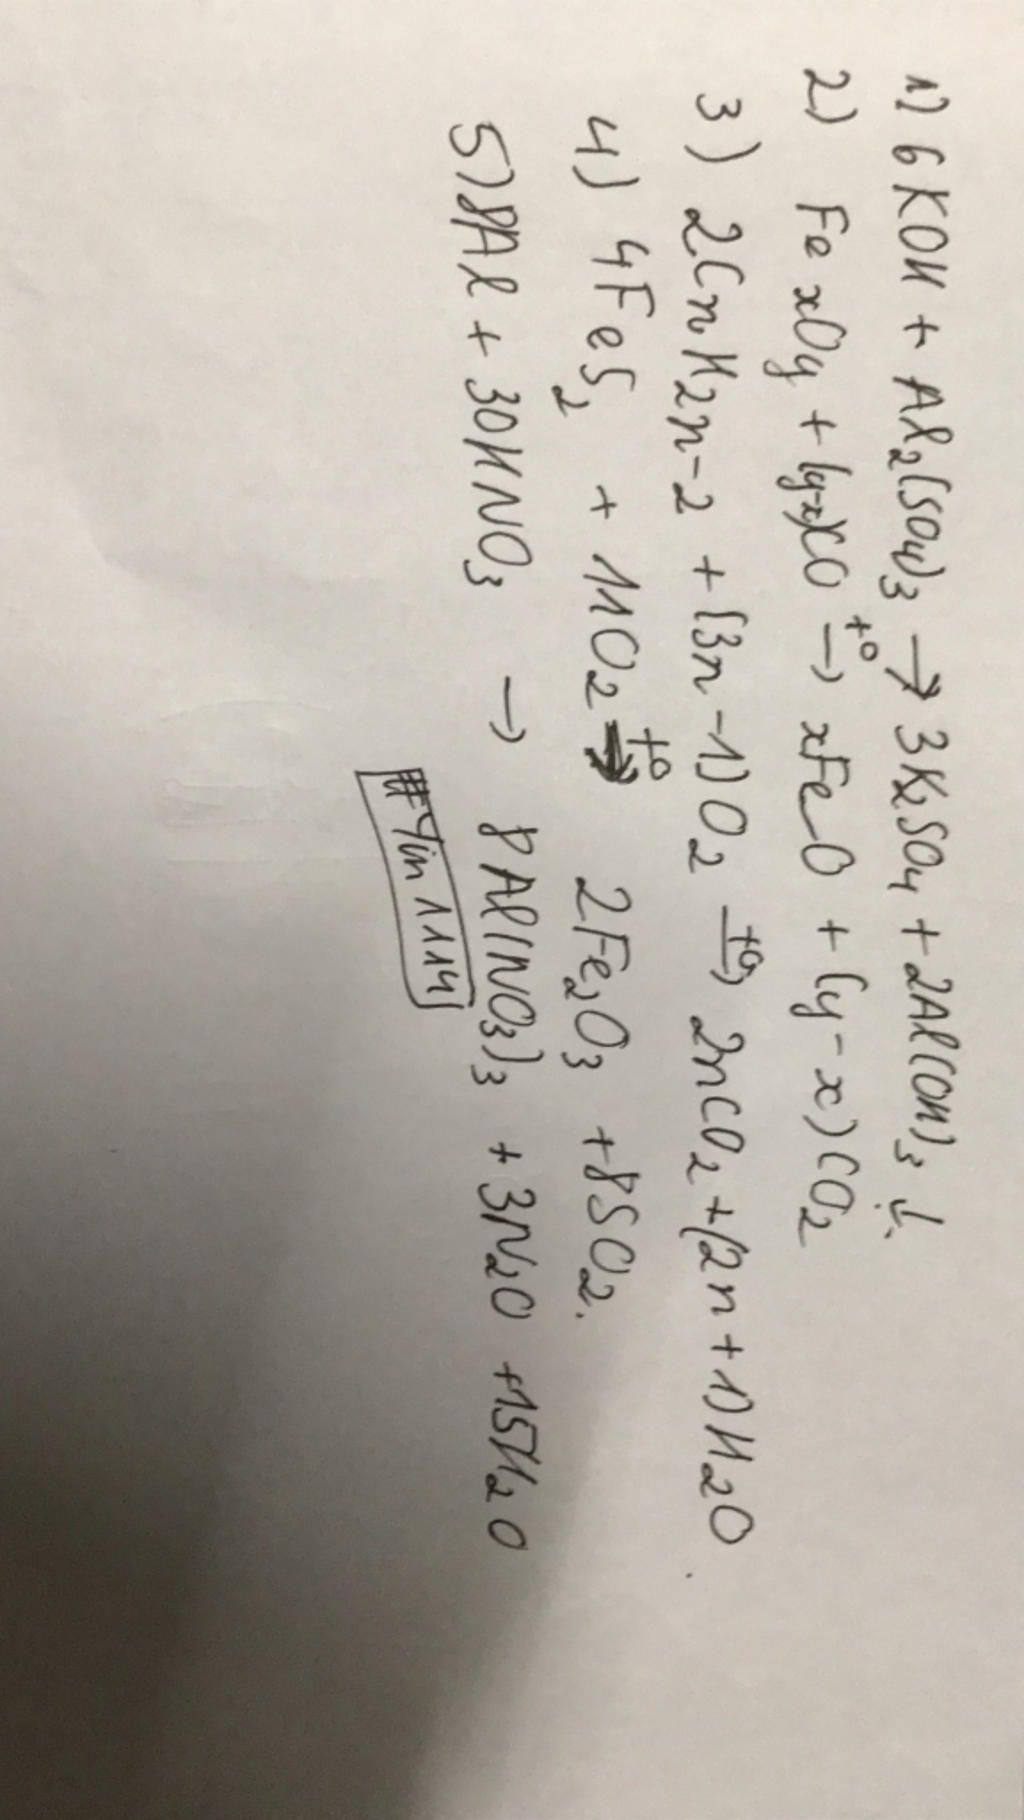 1) 6KOH + Al2(SO4)3 → 3K2SO4 + 2Al(OH)3 ↓
2) FexOy + (y-x)CO →t° xFeO + (y-x)CO2
3) 2CnH2n-2 + (3n-1)O2 →t° 2nCO2 + (2n+1)H2O.
4) 4FeS2 + 11O2 →t° 2Fe2O3 + 8SO2.
5) 8Al + 30HNO3 → 8Al(NO3)3 + 3N2O + 15H2O
#Yin1114